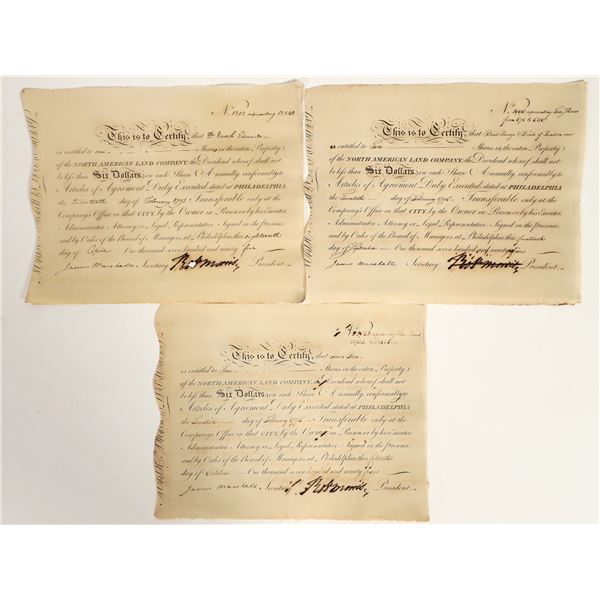 No. 1303 representing
This is to Certify, that Dr. Enoch Edwards
is entitled to one Shares in the entire Property
of the NORTH AMERICAN LAND COMPANY; the Dividend whereof shall not
be less than Six Dollars on each Share Annually, conformably to
Articles of Agreement Duly Executed; dated at PHILADELPHIA
the twentieth day of February 1795 Transferable only at the
Company's Office in that CITY, by the Owner in Person or by his Executor
Administrator Attorney or Legal Representative. Signed in the presence
and by Order of the Board of Managers, at Philadelphia this eighteenth
day of April One thousand seven hundred and ninety five
James Marshall Secretary Robt Morris President
No.
This is to Certify, that
is entitled to Shares in the entire Property
of the NORTH AMERICAN LAND COMPANY; the Dividend whereof shall not
be less than Six Dollars on each Share Annually, conformably to
Articles of Agreement Duly Executed; dated at PHILADELPHIA
the day of February 1795 Transferable only at the
Company's Office in that CITY, by the Owner in Person or by his Executor
Administrator Attorney or Legal Representative. Signed in the presence
and by Order of the Board of Managers, at Philadelphia this
day of September One thousand seven hundred and ninety five
James Marshall Secretary Robt Morris President
This is to Certify, that
is entitled to Shares in the entire Property
of the NORTH AMERICAN LAND COMPANY; the Dividend whereof shall not
be less than Six Dollars on each Share Annually, conformably to
Articles of Agreement Duly Executed; dated at PHILADELPHIA
the day of February 1795 Transferable only at the
Company's Office in that CITY, by the Owner in Person or by his Executor
Administrator Attorney or Legal Representative. Signed in the presence
and by Order of the Board of Managers, at Philadelphia this
day of October One thousand seven hundred and ninety
James Marshall Secretary Robt Morris President